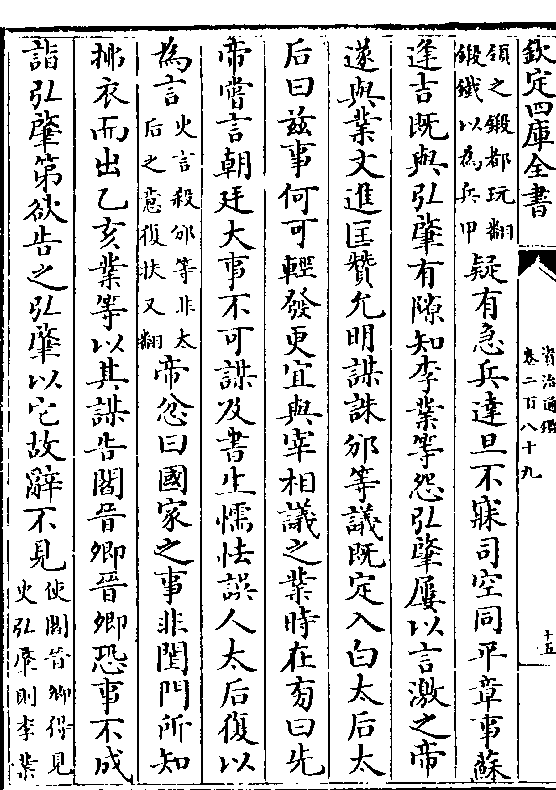 欽定四庫全書
資治通鑑
卷二百八十九
十五
領之鍛都玩翻
鍛鐵以為兵甲
疑有急兵達旦不寐司空同平章事蘇
逢吉既與弘肇有隙知李業等怨弘肇屢以言激之帝
遂與業文進匡贊允明謀誅邠等議既定入白太后太
后曰兹事何可輕發更宜與宰相議之業時在旁曰先
帝嘗言朝廷大事不可謀及書生懦怯誤人太后復以
為言
火言殺邠等非太
后之意復扶又翻
帝忿曰國家之事非閨門所知
拂衣而出乙亥業等以其謀告閻晋卿晉卿恐事不成
詣弘肇第欲告之弘肇以它故辭不見
使閻晉卿得見
史弘肇則李業